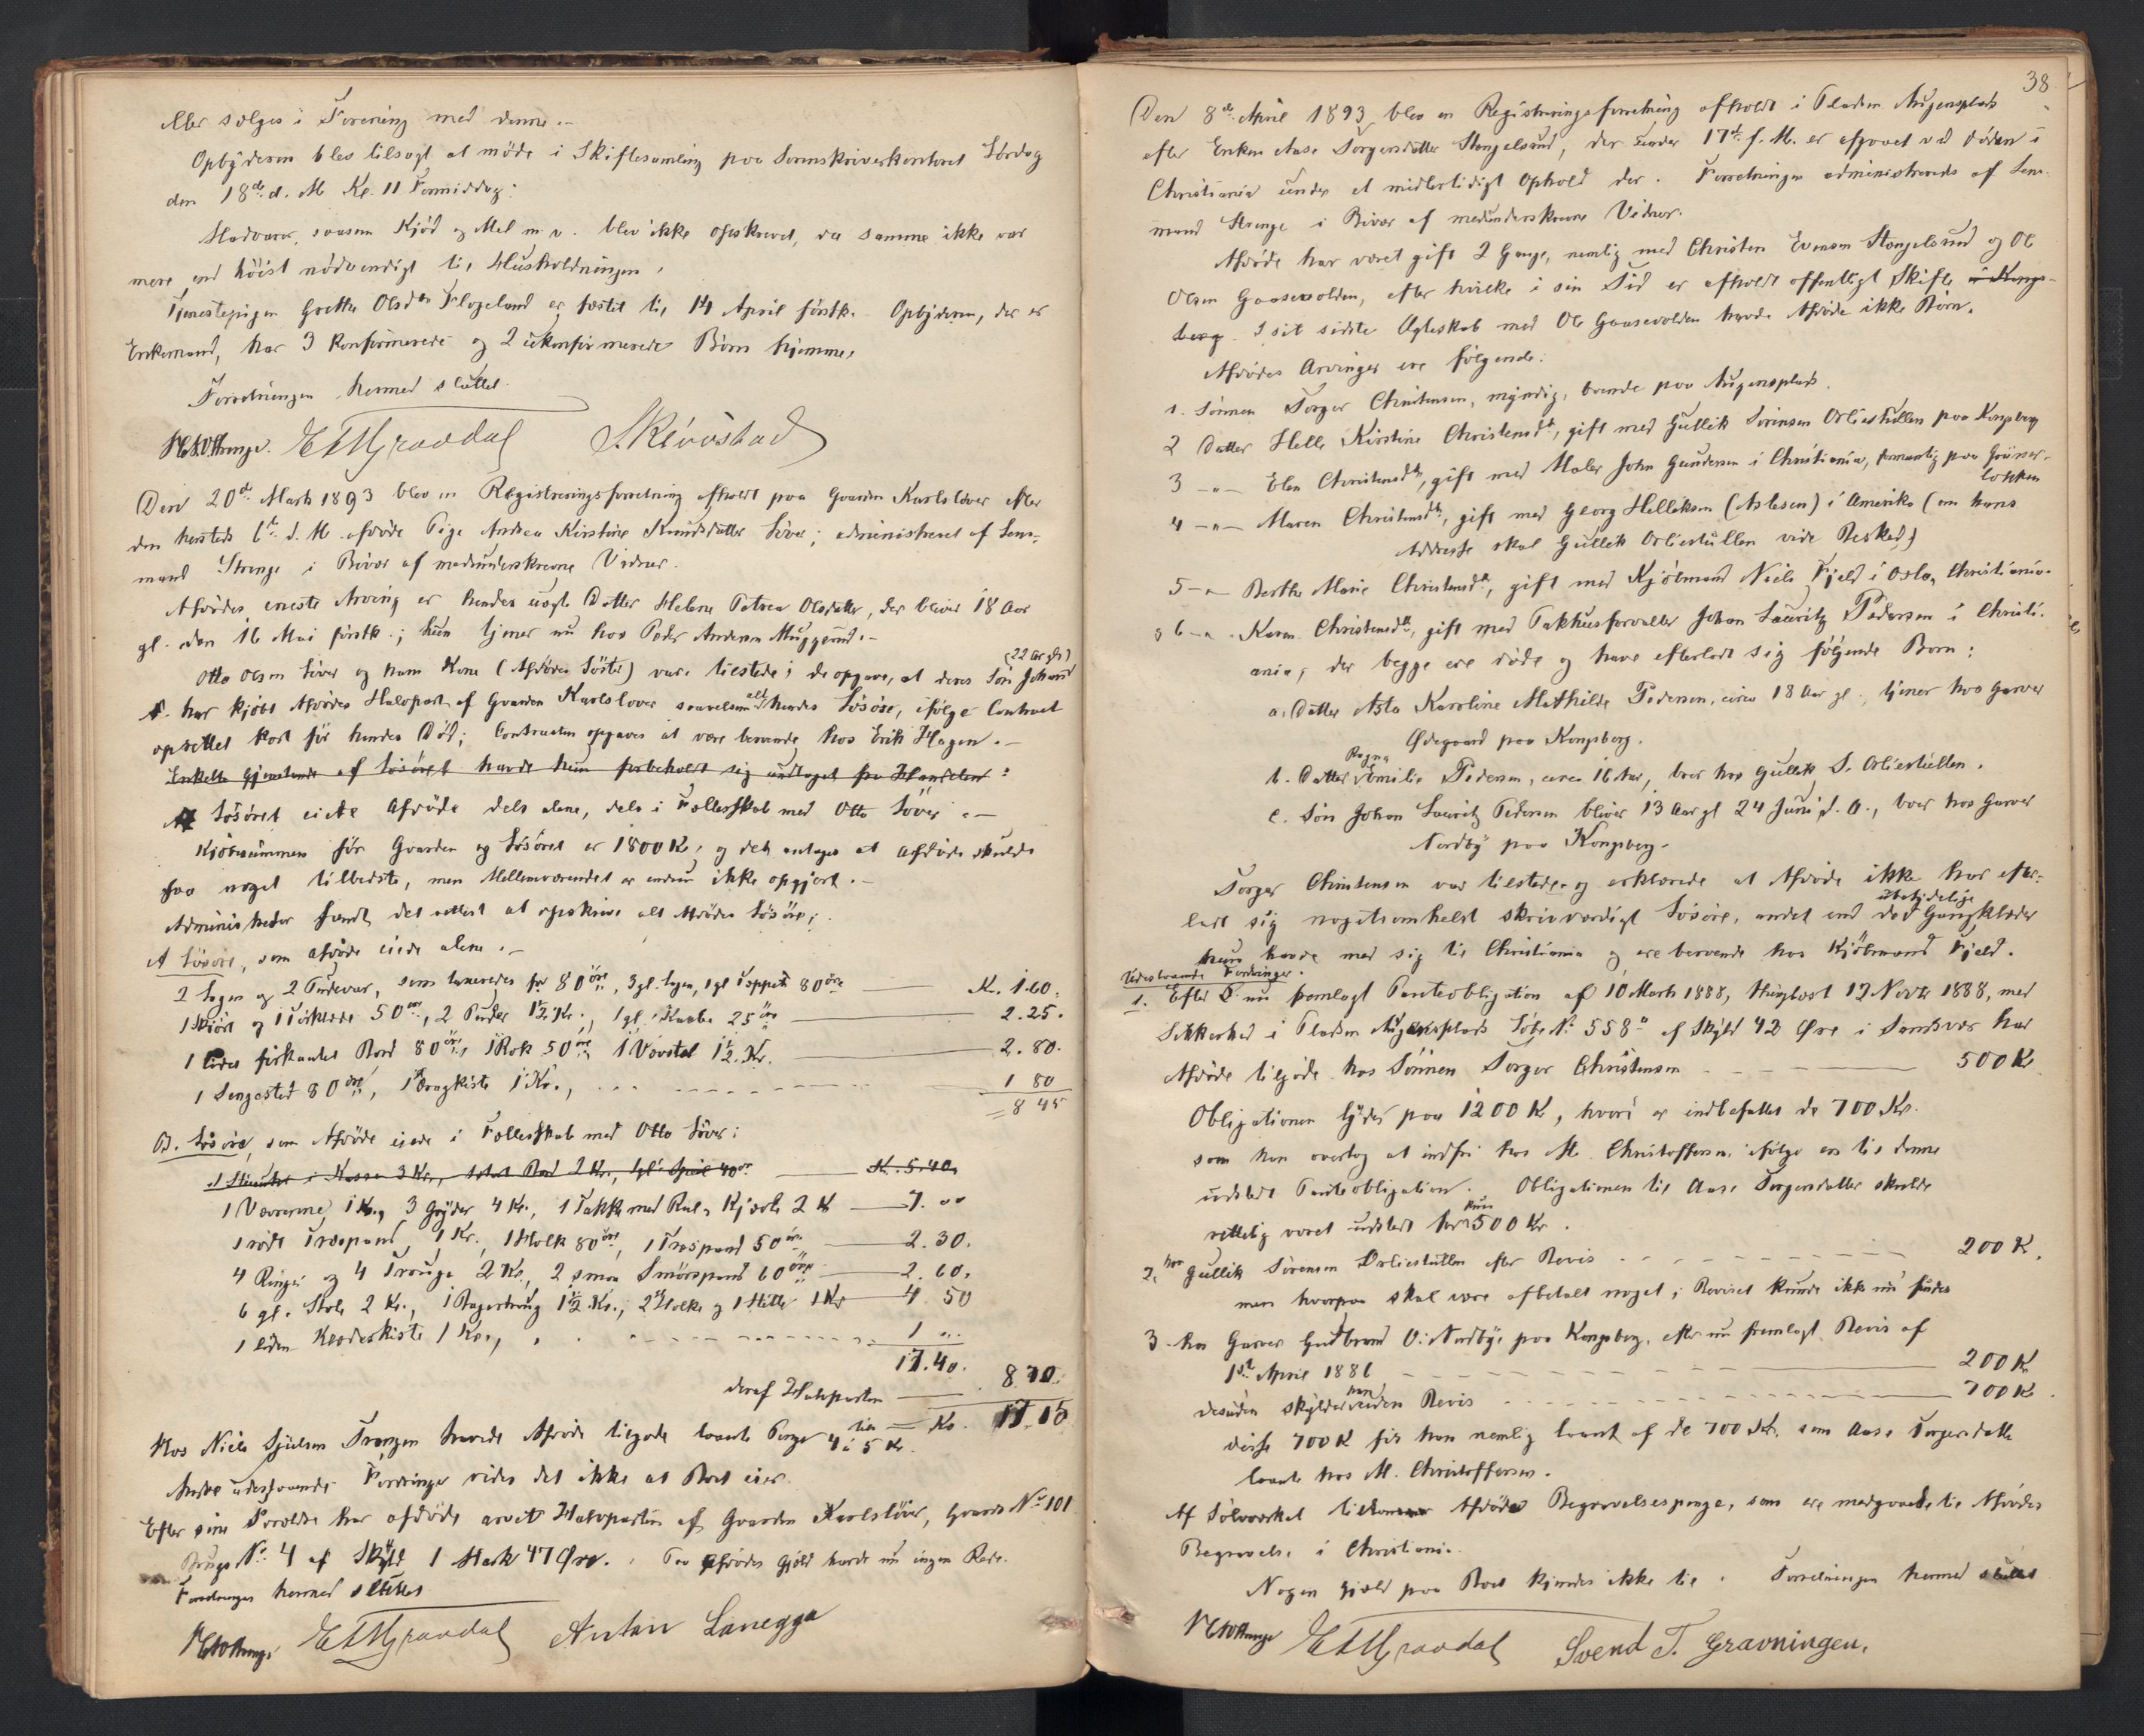 eller sælges i Forening med denne.-
Opbyderen blev tilsagt at møde i Skiftesamling paa Sorenskriverkontoret Lørdag
den 18de d. M. Kl. 11 Formiddag.
Madvarer, saasom Kjød og Mel m. v. blev ikke opskrevet, da samme ikke var
mere end høist nødvendigt til Husholdningen.
Tjenestepigen Grethe Olsdtr Flageland er fæstet til 14 April førstk. Opbyderen, der er
Enkemand, har 3 konfirmerede og 2 ukonfirmerede Børn hjemme.
Forretningen hermed sluttet.
E T Graadal
Den 20de Marts 1893 blev en Registreringsforretning afholdt paa Gaarden Karlsløver efter
den hersteds d. M. afdøde Pige Andrea Kirstine Løver; administreret af Lens-
mand Strenge i Bivær af medunderskrevne Vidner.
Afdødes eneste Arving er hendes uægte Datter Helene Petrea Olsdatter, der bliver 18 Aar
gl. den 16 Mai førstk.; hun tjener nu hos Peder Andersen Muggerud.-
(22 Aar gl.)
Otto Olsen Løver og hans Kone (Afdødes Søster) vare tilstede; de opgave, at deres Søn Johan
har kjøbt Afdødes Halvpart af Gaarden Karlsløver saavelsom alt hendes Løsøre, ifølge Contract
oprettet kort før hendes Død; Contracten opgaves at være beroende hos Erik Hagen.-
Enkelte Gjenstande af Løsøret havde hun forbeholdt sig undtaget fra Handelen:
Løsøret eiede Afdøde dels alene, dels i Fællesskab med Otto Løver.-
Kjøbesummen for Gaarden og Løsøret er 1800 Kr, og det antages at Afdøde skulde
faa noget tilbedste, men Mellemværendet er endnu ikke opgjort.-
Administrator fandt det rettest at opskrive alt Afdødes Løsøre;
A Løsøre, som afdøde eiede alene.-
2 Lagen og 2 Pudevar, som taxeredes for 80 øre, 3 gl. Lagen, 1 gl Tæppe 80 øre K. 1.60.
1 Skjørt og 1 Tørklæde 50 øre, 2 Puder 1½ Kr., 1 gl. Kaabe 25 øre 2.25.
1 lidet firkantet Bord 80 øre, 1 Rok 50 øre, 1 Vævstol 1½ Kr. 2.80.
1 Sengested 80 øre, 1 Dragkiste 1 Kr., 1 80
= 8 45
B. Løsøre, som Afdøde eiede i Fællesskab med Otto Løver:
K. 5.40.
1 Væverende 1 Kr., 3 Gryder 4 Kr., 1 Takke med Rul, Kjævle 2 K 7. "
1 rødt Træspand 1 Kr., 1 Holk 80 øre, 1 Træspand 50 øre 2.30.
4 Ringer og 4 Trauge 2 Kr., 2 smaa Smørspand 60 øre 2.60.
6 gl. Stole 2 Kr., 1 Bagertraug 1½ Kr., 2 Holke og 1 Hitte 1 Kr 4.50
1 liden Klædeskiste 1 Kr., 1 "
17.40.
deraf Halvparten 8.70.
= Kr. 17.15
Hos Niels Trangen havde Afdøde tilgode laante Penge 4 à 5 Kr.
Andre udestaaende Fordringer vides det ikke at Boet eier.
Efter sine Forældre har afdøde arvet Halvparten af Gaarden Karlsløver, Gaards No 101
Brugs No. 4 af Skyld 1 Mark 47 Øre. Paa Afdødes Gjæld havde nu ingen Rede.
Forretningen hermed sluttet
E T Graadal Anton Lanegga
38
Den 8de April 1893 blev en Registreringsforretning afholdt i Pladsen Augensplads
efter Enken Aase Torgersdatter Stengelsrud, der under 17de f. M. er afgaaet ved Døden i
Christiania under et midlertidigt Ophold der. Forretningen administreredes af Lens-
mand Strenge i Bivær af medunderskrevne Vidner.
Afdøde har været gift 2 Gange, nemlig med Christen Evensen Stengelsrud og Ole
Olsen Gaasevolden, efter hvilke i sin Tid er afholdt offentligt Skifte i Kongs-
berg. I sit sidste Ægteskab med Ole Gaasevolden havde Afdøde ikke Børn.
Afdødes Arvinger ere følgende:
1. Sønnen Torger Christensen, myndig, boende paa Augensplads.
2 Datter Helle Kirstine Christensdtr, gift med Gullik Sørensen Orliestullen paa Kongsberg
3 -"- Elen Christensdtr, gift med Maler John Gundersen i Christiania, formentlig paa Grüner-
løkken
4 -"- Maren Christensdtr, gift med Georg Helleksen (Aslesen) i Amerika (om hans
Addresse skal Gullik Orliestullen vide Besked)
5 -"- Berthe Marie Christensdtr, gift med Kjøbmand Niels Fjeld i Oslo, Christiania.
6 -"- Karen Christensdtr, gift med Pakhusforvalter Johan Lauritz Pedersen i Christi-
ania, der begge ere døde og have efterladt sig følgende Børn:
a. Datter Asta Karoline Mathilde Pedersen, circa 18 Aar gl., tjener hos Garver
Ødegaard paa Kongsberg.
Ragna
b. Datter Emilie Pedersen, circa 16 Aar, boer hos Gullik S. Orliestullen.
c. Søn Johan Lauritz Pedersen bliver 13 Aar gl 24 Juni d. A., boer hos Garver
Nordby paa Kongsberg.
Torger Christensen var tilstede og erklærede at Afdøde ikke har efter-
ladt sig nogetsomhelst skrivværdigt Løsøre, andet end de ubetydelige Gangklæder
hun havde med sig til Christiania og ere beroende hos Kjøbmand Fjeld.
Udestaaende Fordringer.
1. Efter nu fremlagt Panteobligation af 10 Marts 1888, thinglæst 12 Novbr 1888, med
Sikkerhed i Pladsen Augensplads Løbe No 558a af Skyld 42 Øre i Sandsvær har
Afdøde tilgode hos Sønnen Torger Christensen 500 Kr
Obligationen lyder paa 1200 Kr, hvori er indbefattet de 700 Kr.
som han overtog at indfri hos M. Christoffersen ifølge en til denne
udstedt Panteobligation. Obligationen til Aase Torgersdatter skulde
rettelig været udstedt for kun 500 Kr.
2. hos Gullik Sørensen Orliestullen efter Bevis 200 K.
men hvorpaa skal være afbetalt noget; Beviset kunde ikke nu findes
3. hos Garver Gudbrand O. Nordby paa Kongsberg, efter nu fremlagt Bevis af
1ste April 1886 200 Kr
desuden skylder han uden Bevis 700 Kr
disse 700 K fik han nemlig laant af de 700 Kr. som Aase Torgersdatter
laante hos M. Christoffersen.
Af Sølvværket tilkommer Afdøde Begravelsespenge, som ere medgaaede til Afdødes
Begravelse i Christiania.
Nogen Gjæld paa Boet kjendes ikke til. Forretningen hermed sluttet
E T Graadal Svend T. Gravningen.